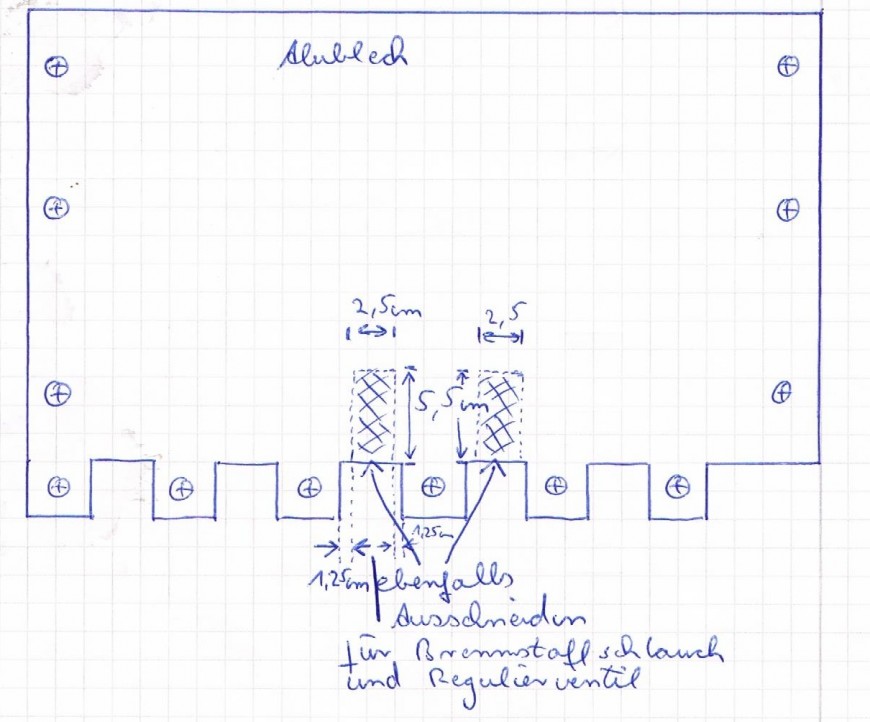 Alublech
2,5cm
2,5
5,5cm
1,25cm
1,25cm
ebenfalls
Ausschneiden
für Brennstoffschlauch
und Regulierventil